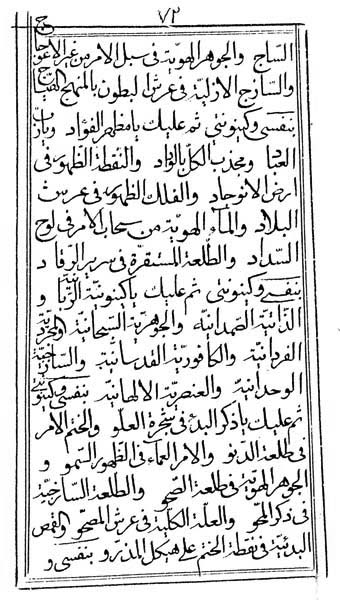 ٧٢
الساج والجوهر الهوية فى سبل الامر من غير الاعوجاج
والسازج الازلية فى عرش البطون بالمنهج
بنفسى وكينونتى ثم عليك يا مظهر الفؤاد و
العباد ومجذب الكل بالؤاد والنقطة الظهور فى
ارض الانوجاد والفلك الظهور فى عرش
البلاد والماء الهوية من سحاب الامر فى لوح
السداد والطلعة المستقرة فى سرير الرقاد
بنفسى وكينونتى ثم عليك يا كينونية الربانية و
الذاتية الصمدانية والجوهرية السبحانية والمجردية
الفردانية والكافورية القدسانية والساذجية
الوحدانية والعنصرية الالهانية بنفسى وكينونتى
ثم عليك يا ذكر البدء فى شجرة العلو والختم الامر
فى طلعة الدنو والامر العماء فى الظهور السمو و
الجوهر الهوية فى طلعة الصحو والطلعة السازجية
فى ذكر المحو والعلة الكلية فى عرش المصحو والقمص
البدئية فى نقطة الختم على هيكل المذرو بنفسى و